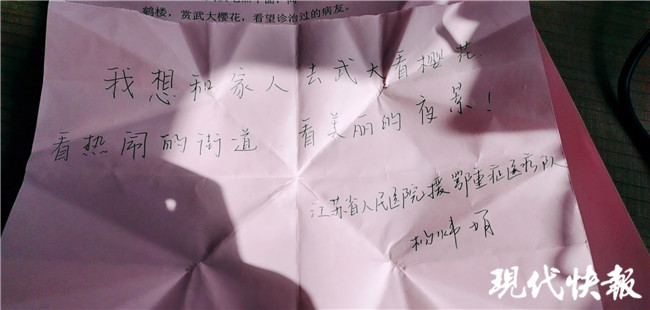 鹤楼，赏武大樱花，看望诊治过的病友。
我想和家人去武大看樱花
看热闹的街道 看美丽的夜景！
江苏省人民医院援鄂重症医疗队
娟
现代快報